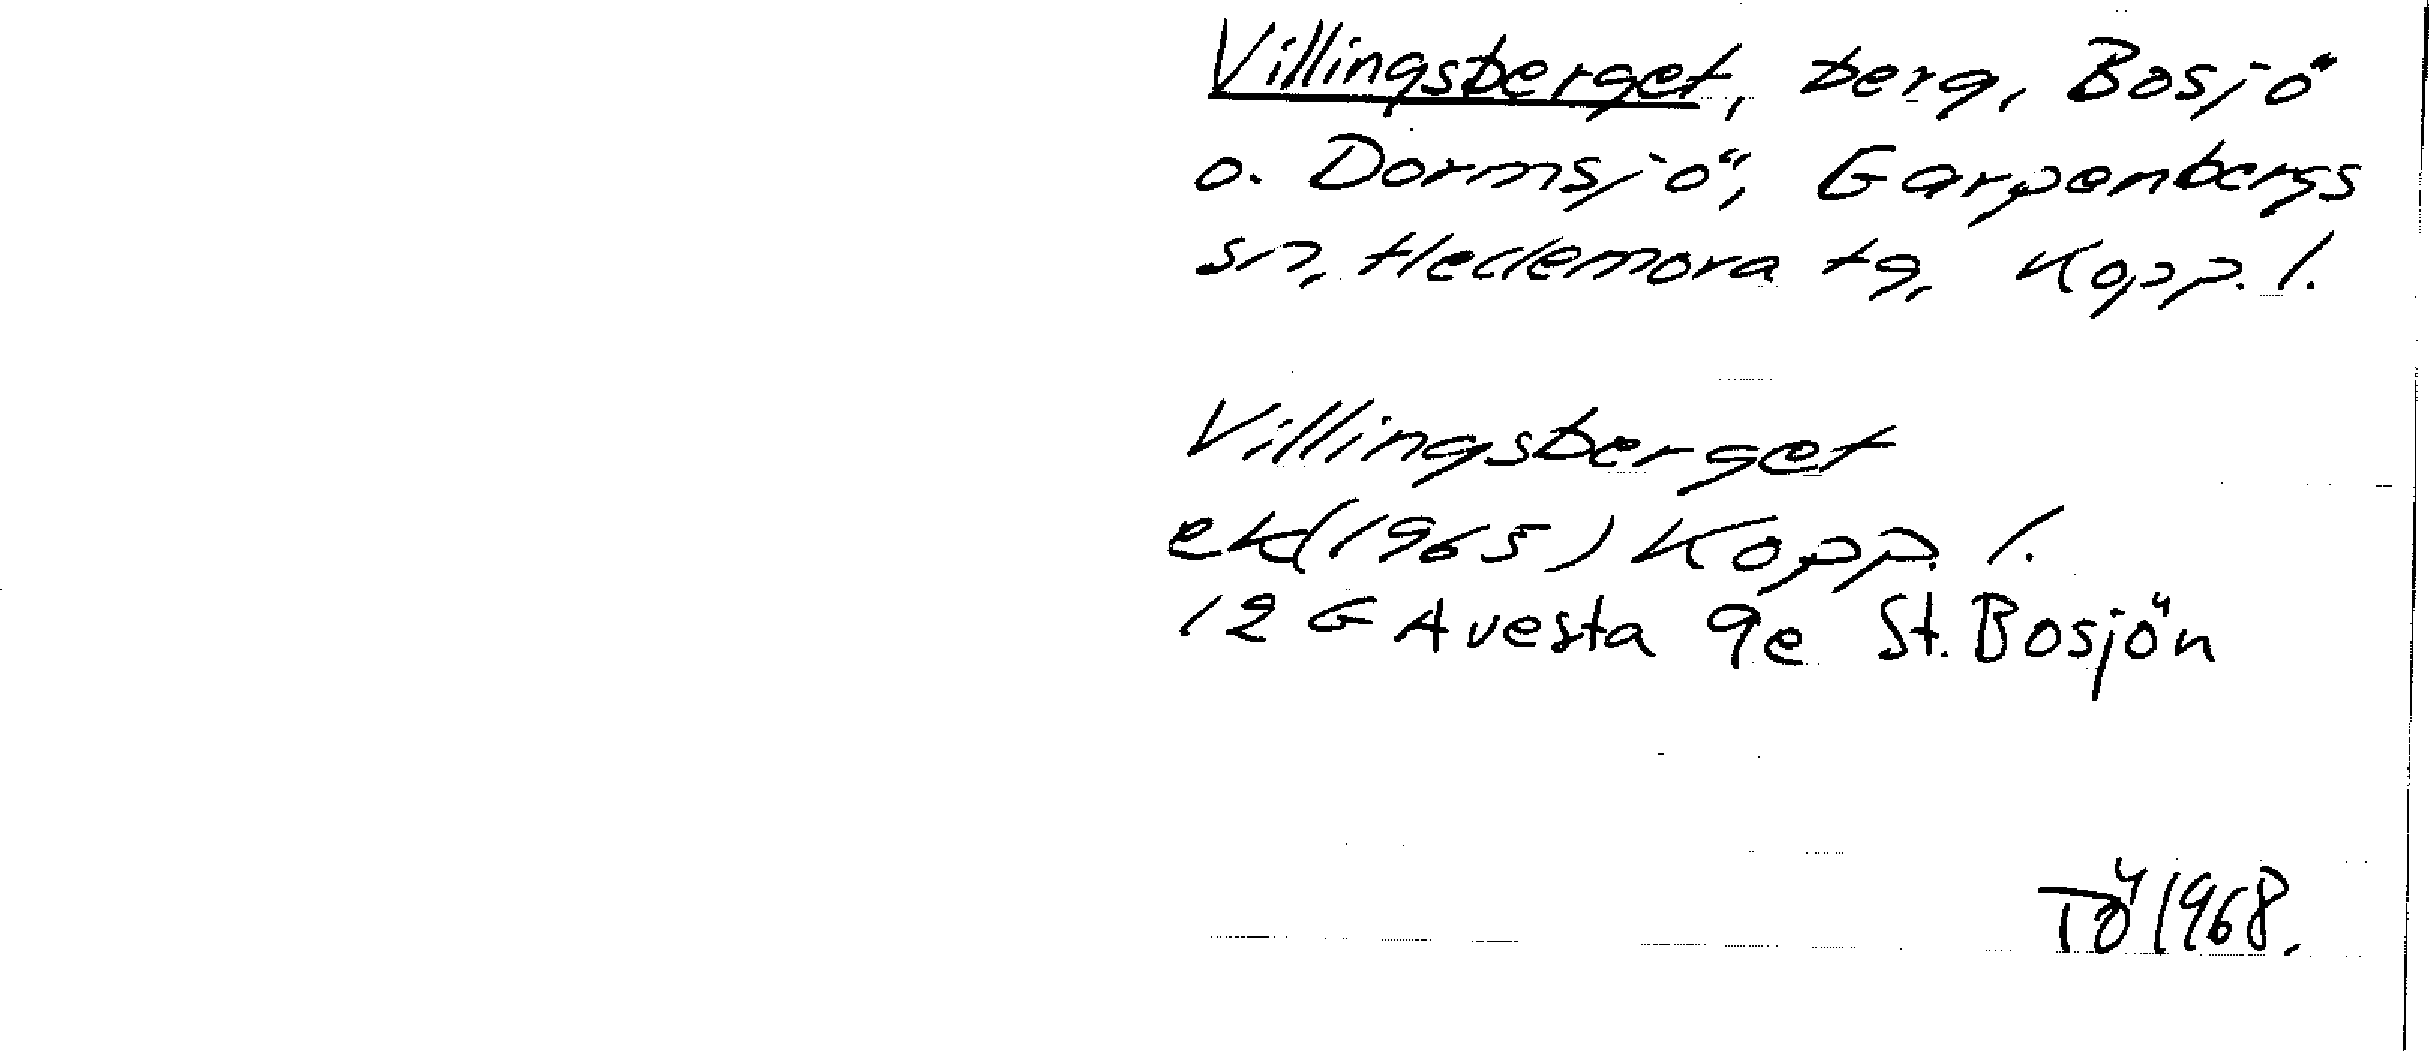 Villingsberget, berg, Bosjö
o. Dormsjö, Garpenbergs
sn, Hedemora tg, Kopp. l.
Villingsberget
ek (1965) Kopp. l.
12 G Avesta 9e St. Bosjön
TÖ 1968.